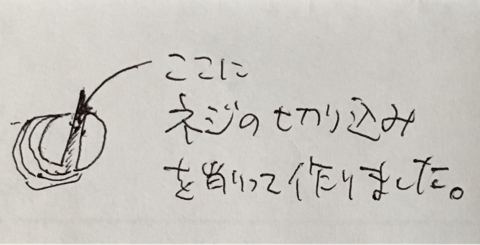 ここに
ネジの切り込み
を削って作りました。